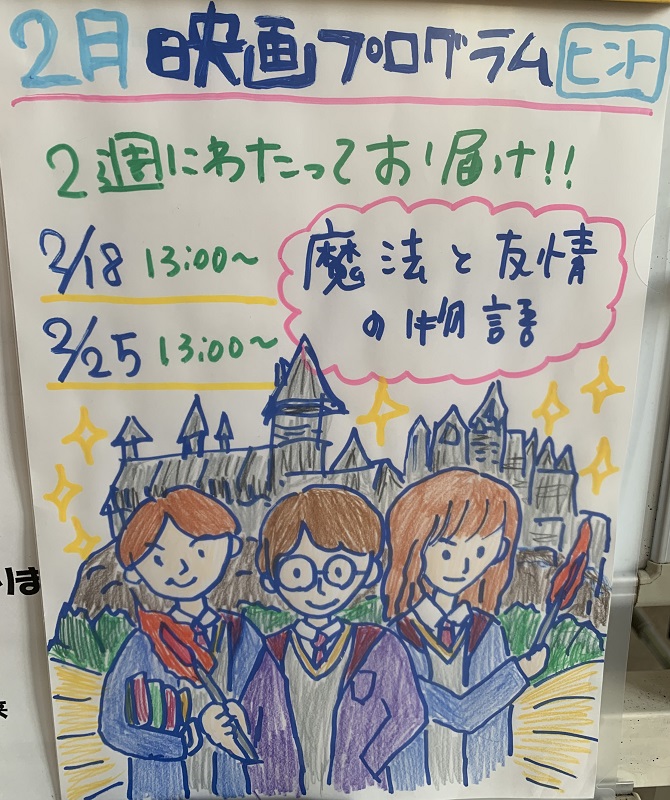 2月 映画プログラム ヒント
2週にわたってお届け!!
2/18 13:00～
2/25 13:00～
魔法と友情
の物語
りま
来